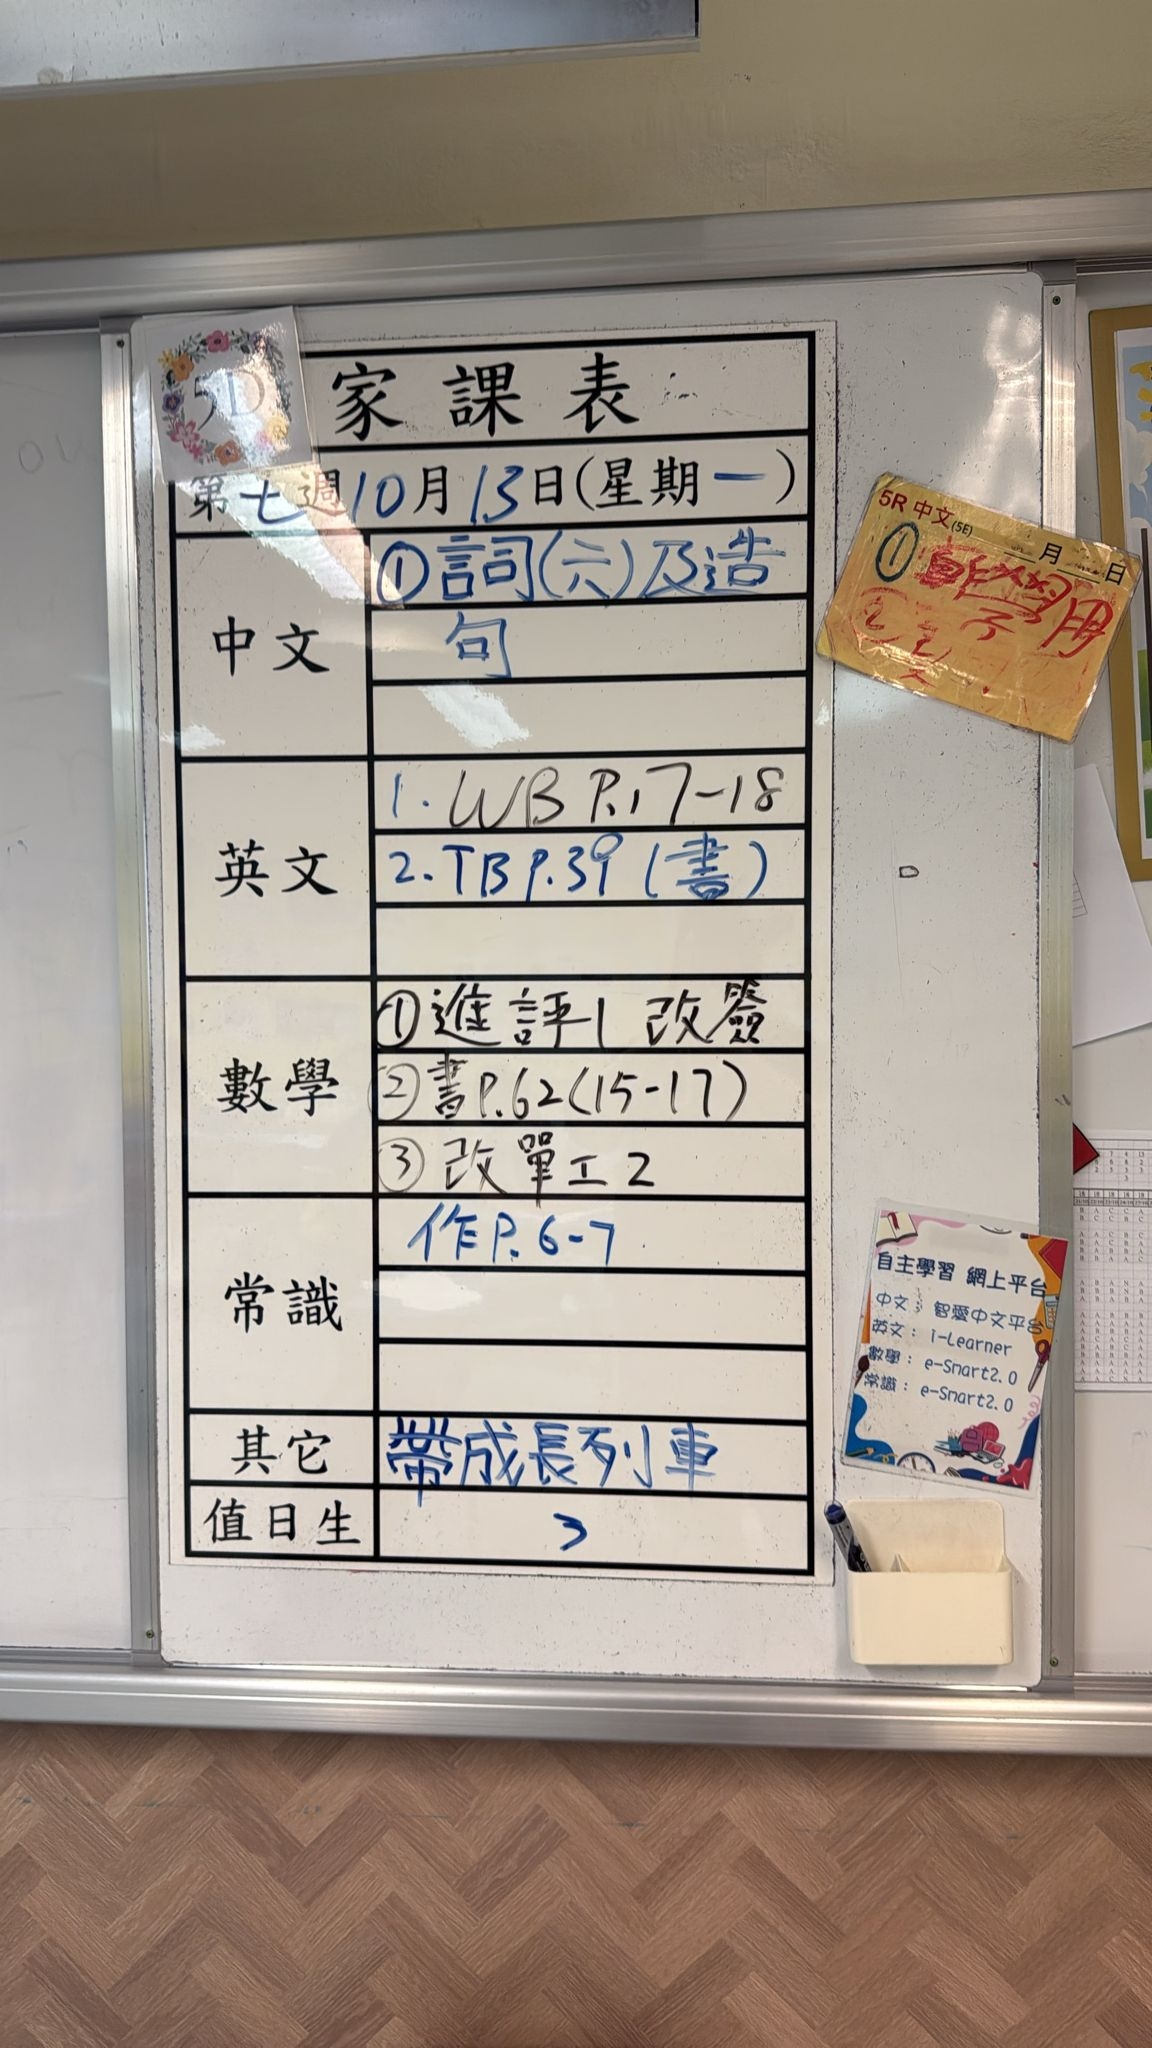 5D
家課表
第七週10月13日(星期一)
中文
①詞(六)及造
句
英文
1. WB P.17-18
2. TB P.39 (書)
數學
①進評1 改簽
②書P.62(15-17)
③改單工2
常識
作P.6-7
其它
帶成長列車
值日生
3
5R 中文(5E) __月__日
①
②
自主學習 網上平台
中文: 智愛中文平台
英文: i-Learner
數學: e-Smart2.0
常識: e-Smart2.0